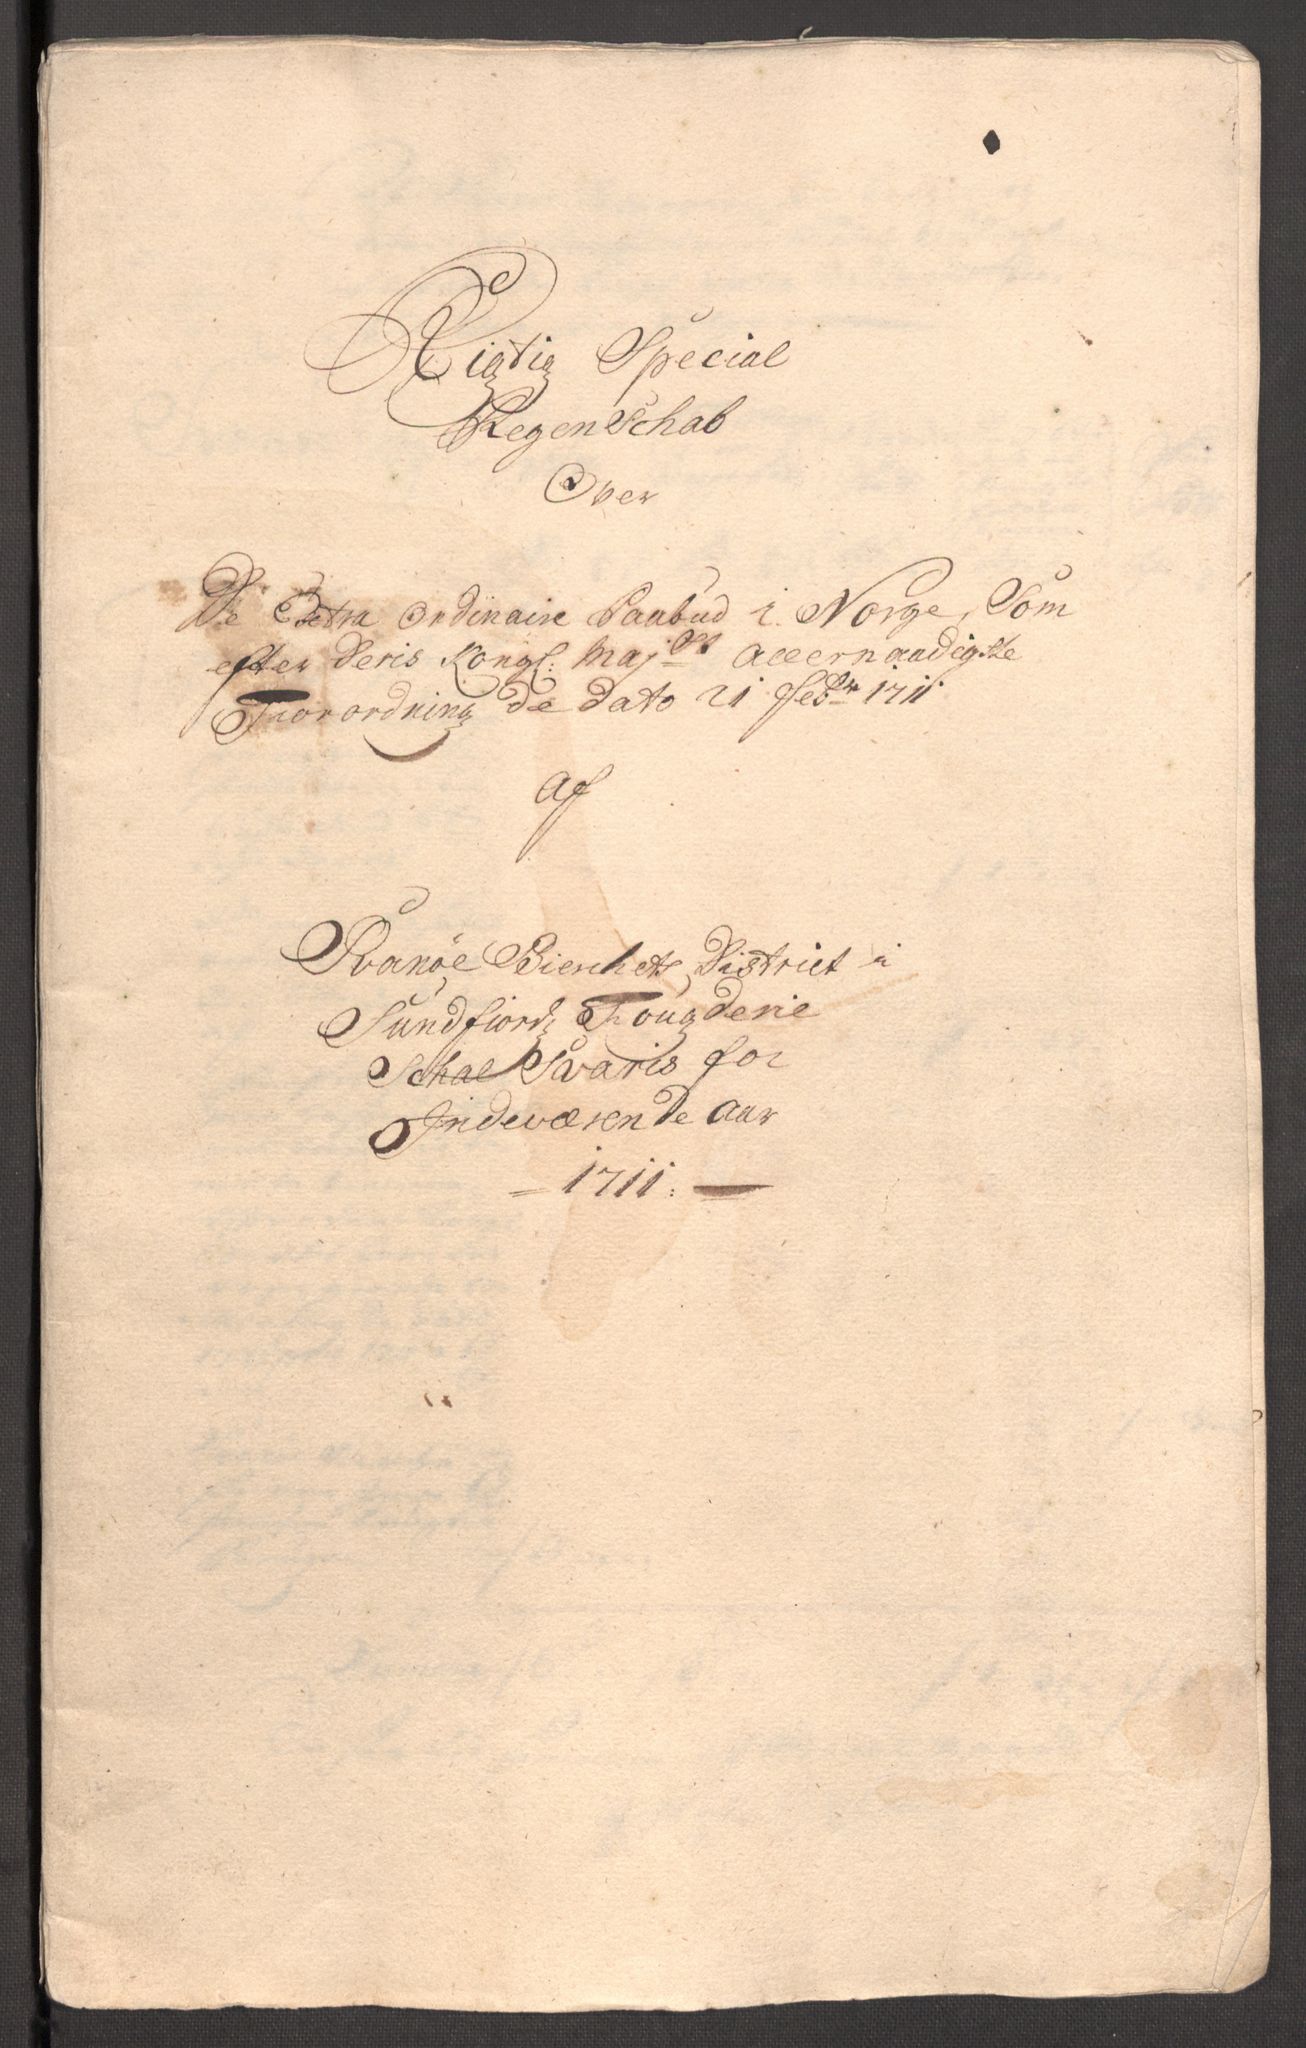 Rigtig Special
RegenSchab
Over
De Extra Ordinaire Paabud i Norge, Som
efter Deris Kongl: Majts Allernaadigste
Forordning de Dato 21 febr 1711
Af
Svanøe District i
Sundfiords Fougderie
Schal Svaris for
Indeværende Aar
1711